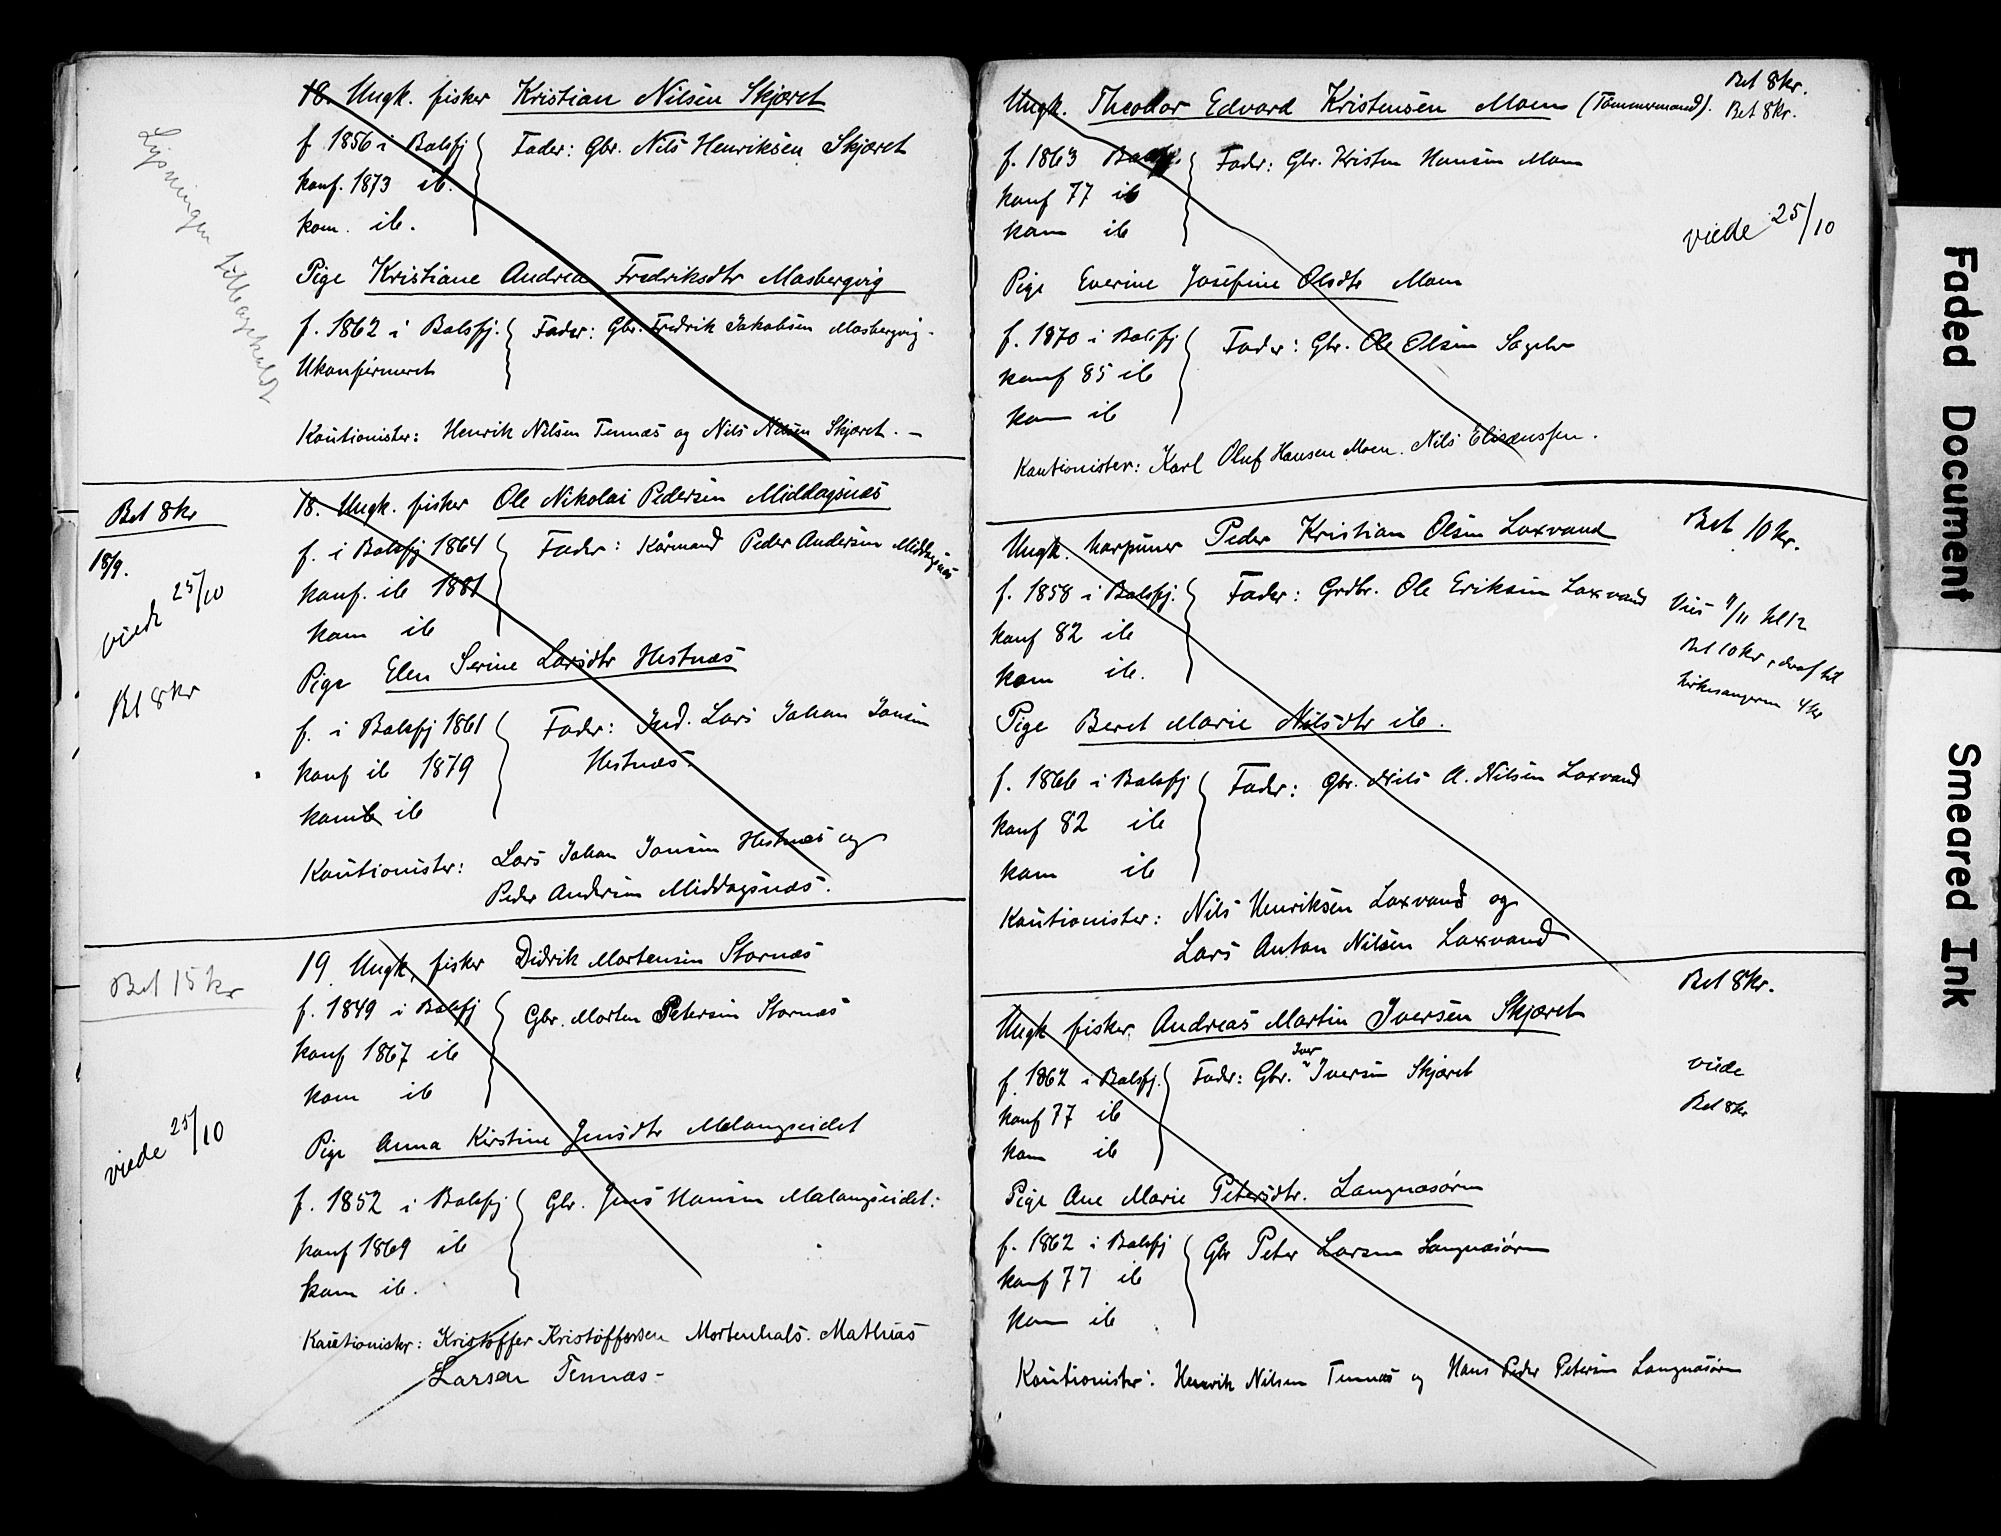 18. Ungk. fisker Kristian Nilsen Skjæret
f. 1856 i Balsfj
konf. 1873 ib.
kom. ib.
Fader: Gbr. Nils Henriksen Skjæret
Lysningen tilbagekaldt
Pige Kristiane Andrea Fredriksdtr Masbergvig
f. 1862 i Balsfj.
Ukonfirmeret
Fader: Gbr. Fredrik Jakobsen Masbergvig.
Kautionister: Henrik Nilsen Tennæs og Nils Nilsen Skjæret. –
Bet 8 kr
18/9.
viede 25/10
Bet 8 kr
18. Ungk. fisker Ole Nikolai Pedersen Middagsnæs
f. i Balsfj 1864
konf. ib 1881
kom ib
Fader: Kårmand Peder Andersen Middagsnæs
Pige Elen Serine Larsdtr Hestnæs
f. i Balsfj 1861
konf ib 1879
kom ib
Fader: Ind. Lars Johan Jonsen
Hestnæs.
Kautionister: Lars Johan Jonsen Hestnæs og
Peder Andersen Middagsnæs.
Bet 15 kr
viede 25/10
19 Ungk. fisker Didrik Mortensen Stornæs
f. 1849 i Balsfj
konf 1867 ib
kom ib
Gbr. Morten Petersen Stornæs
Pige Anna Kirstine Jensdtr Malangseidet
f. 1852 i Balsfj
konf 1869 ib
kom ib.
Gbr. Jens Hansen Malangseidet.
Kautionister: Kristoffer Kristoffersen Mortenhals. Mathias
Larsen Tennæs-
Ungk. Theodor Edvard Kristensen Moen (Tømmermand).
Bet 8 kr.
Bet 8 kr.
f. 1863 Balsfj.
konf 77 ib
kom ib
Fader: Gbr. Kristen Hansen Moen
viede 25/10
Pige Everine Josefine Olsdtr Moen
f. 1870 i Balsfj
konf 85 ib
kom ib
Fader: Gbr. Ole Olsen
Kautionister: Karl Oluf Hansen Moen. Nils Elisæussen.
Ungk. harpuner Peder Kristian Olsen Laxvand
Bet 10 kr.
f. 1858 i Balsfj.
konf 82 ib
kom ib.
Fader: Grdbr. Ole Eriksen Laxvand
Bet 10 kr, deraf til
kirkesangeren 4 kr
Pige Beret Marie Nilsdtr ib.
f. 1866 i Balsfj
konf 82 ib
kom ib
Fader: Gbr. Nils A. Nilsen Laxvand
Kautionister: Nils Henriksen Laxvand og
Lars Anton Nilsen Laxvand
Ungk fisker Andreas Martin Iversen Skjæret
Bet 8 kr.
viede
Bet 8 kr
f. 1862 i Balsfj.
konf 77 ib
kom ib
Fader: Gbr. Iver Iversen Skjæret
Pige Ane Marie Petersdtr. Langnæsøren
f. 1862 i Balsfj
konf 77 ib
kom ib
Gbr Peter Larsen Langnæsøren
Kautionister: Henrik Nilsen Tennæs og Hans Peder Petersen Langnæsøren
Faded Document
Smeared Ink